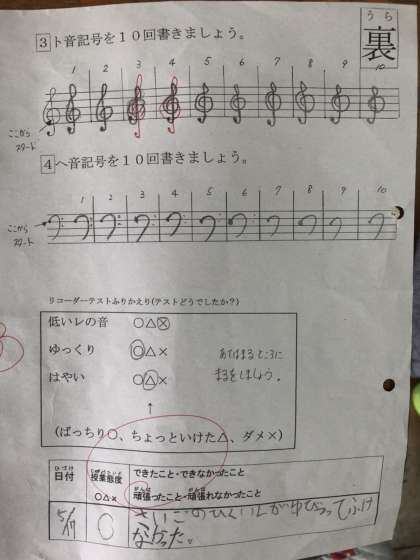 うら
裏
3 ト音記号を10回書きましょう。
1 2 3 4 5 6 7 8 9 10
ここから
スタート
4 ヘ音記号を10回書きましょう。
1 2 3 4 5 6 7 8 9 10
ここから
スタート
リコーダーテストふりかえり(テストどうでしたか?)
低いレの音 ○△×
ゆっくり ○△×
はやい ○△×
あてはまるところに
まるをしましょう。
↑
(ばっちり○、ちょっといけた△、ダメ×)
ひづけ じゅぎょうたいど
日付 授業態度 できたこと・できなかったこと
がんば がんば
○△× 頑張ったこと・頑張れなかったこと
5/17 ○ さいごのひくいレがゆびつってふけ
なかった。